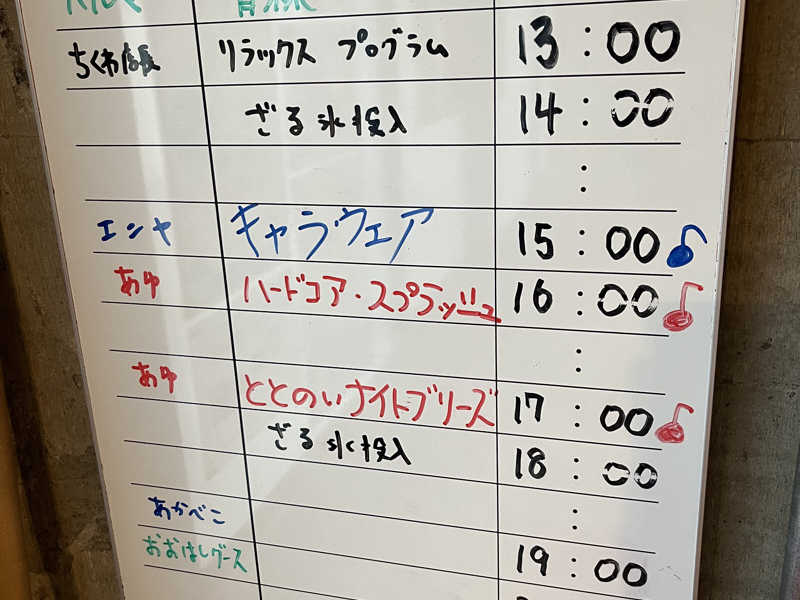 ちくわ店長 リラックス プログラム 13:00
ざる氷投入 14:00
:
エンヤ キャラウェア 15:00
あゆ ハードコア・スプラッシュ 16:00
:
あゆ ととのいナイトブリーズ 17:00
ざる氷投入 18:00
あかべこ :
おおはしグース 19:00